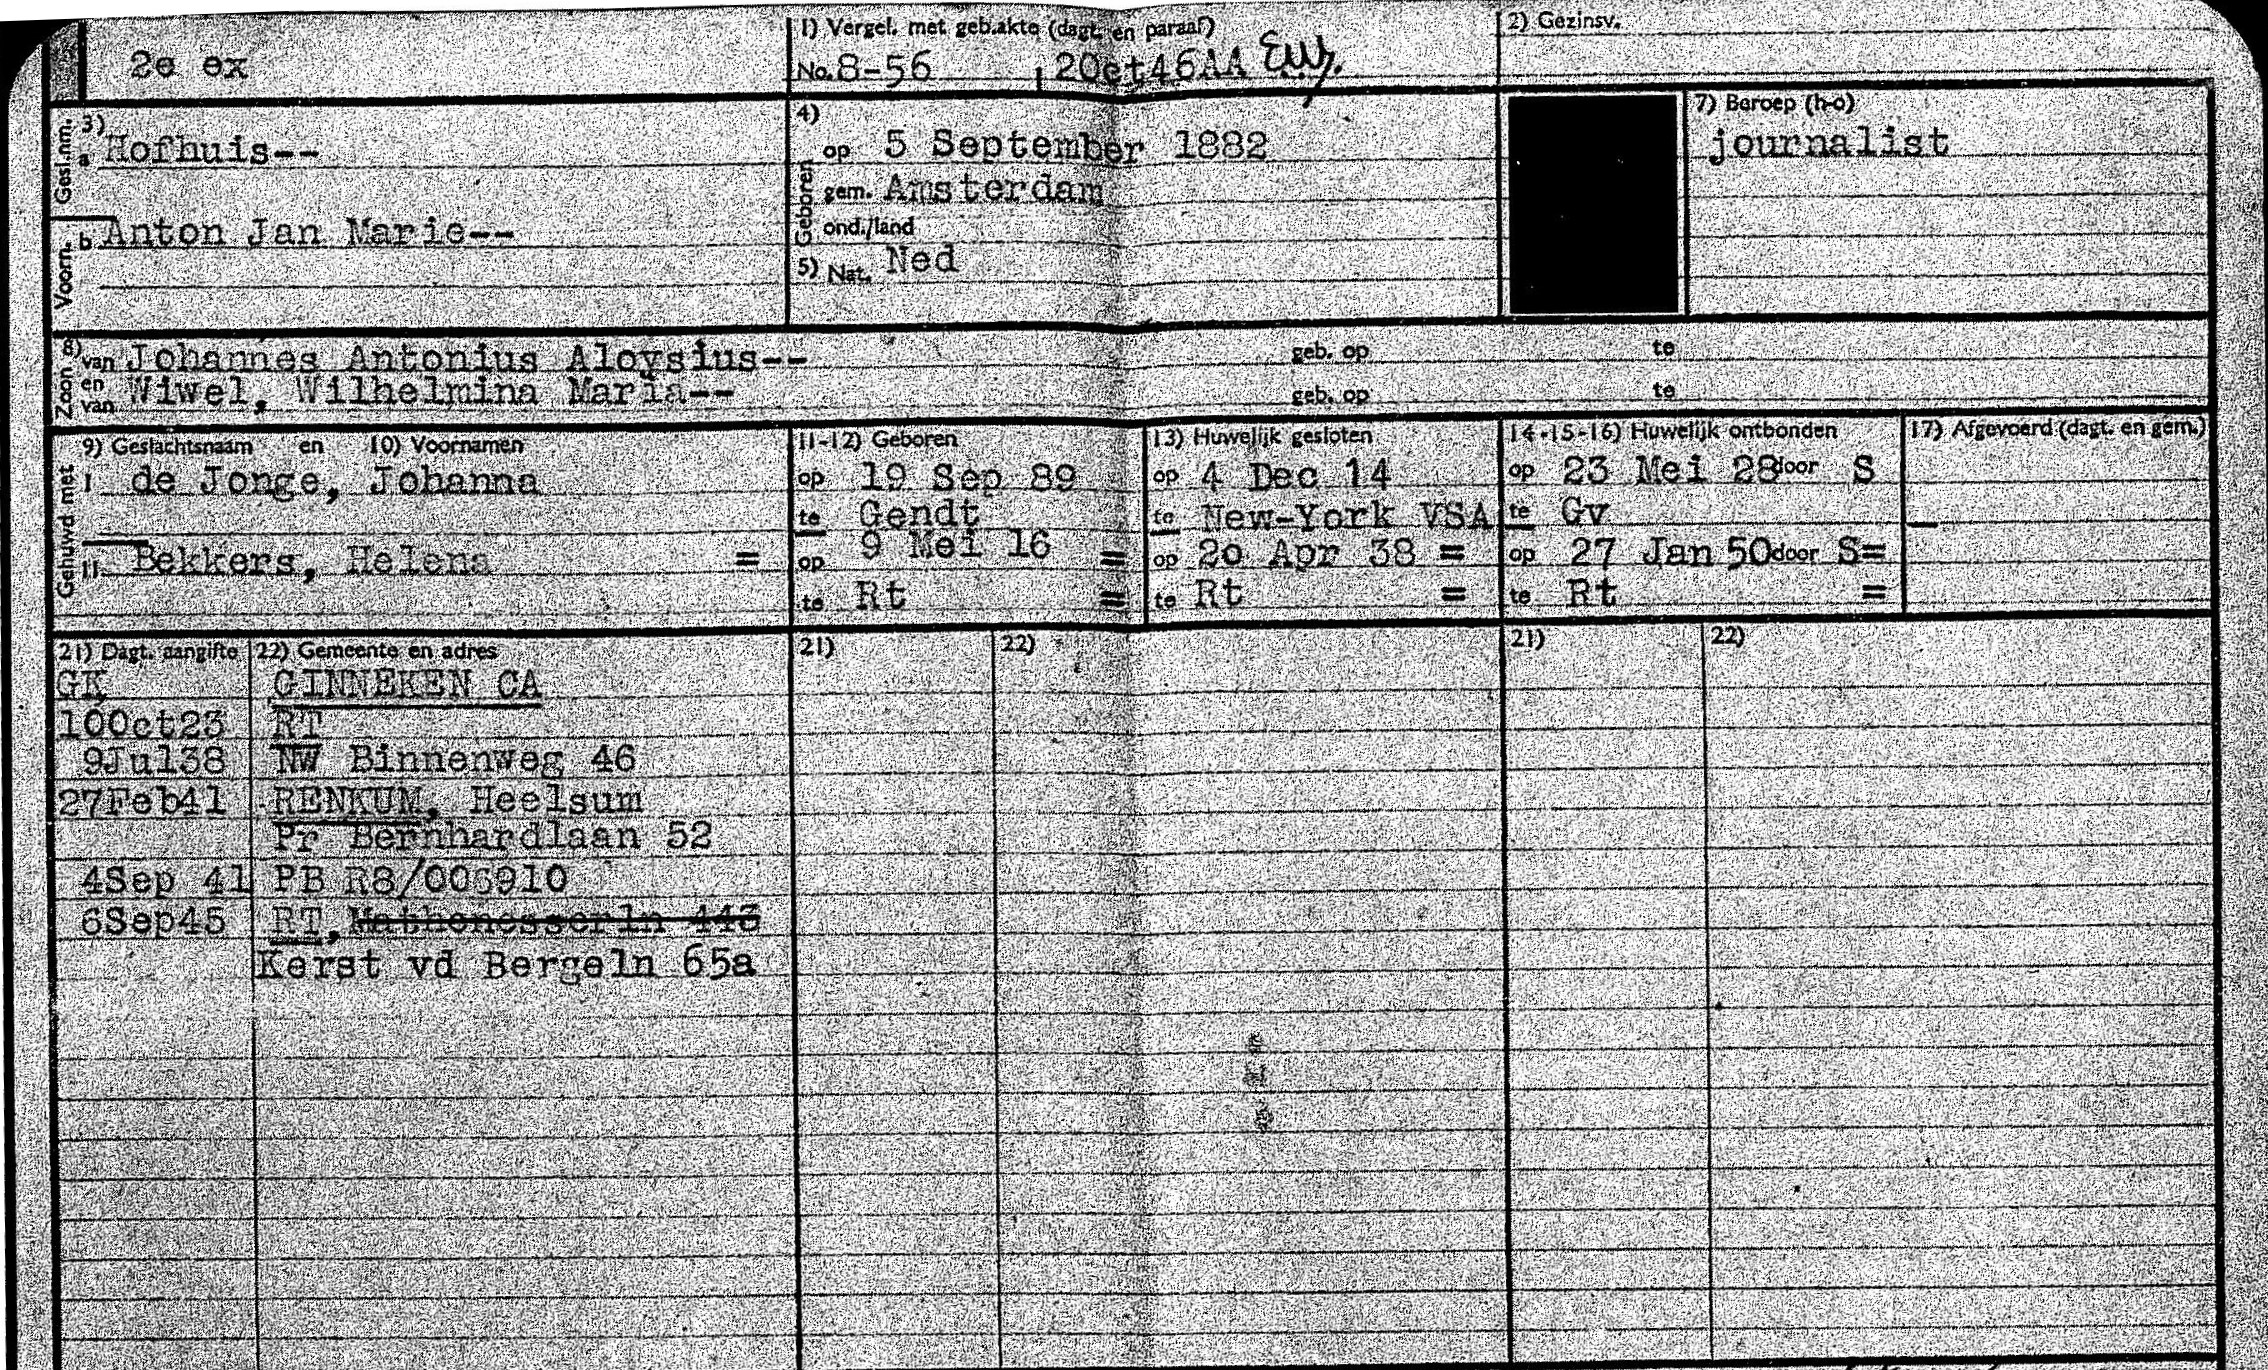 2e ex
1) Vergel. met geb.akte (dagt. en paraaf)
No. 8-56 2Oct46AA
2) Gezinsv.
Gesl.nm. 3)
a Hofhuis--
Voorn. b Anton Jan Marie--
4)
Geboren
op 5 September 1882
gem. Amsterdam
ond./land
5) Nat. Ned
7) Beroep (h-o)
journalist
Zoon 8) van Johannes Antonius Aloysius-- geb. op te
en van Wiwel, Wilhelmina Maria-- geb. op te
Gehuwd met
9) Geslachtsnaam en 10) Voornamen
I de Jonge, Johanna
II Bekkers, Helena =
11-12) Geboren
op 19 Sep 89
te Gendt
op 9 Mei 16 =
te Rt =
13) Huwelijk gesloten
op 4 Dec 14
te New-York VSA
op 20 Apr 38 =
te Rt =
14-15-16) Huwelijk ontbonden
op 23 Mei 28 door S
te Gv
op 27 Jan 50 door S=
te Rt =
17) Afgevoerd (dagt. en gem.)
21) Dagt. aangifte 22) Gemeente en adres 21) 22) 21) 22)
GK GINNEKEN CA
10Oct23 RT
9Jul38 NW Binnenweg 46
27Feb41 RENKUM, Heelsum
Pr Bernhardlaan 52
4Sep 41 PB R8/006910
6Sep45 RT, Mathenesserln 443
Kerst vd Bergeln 65a